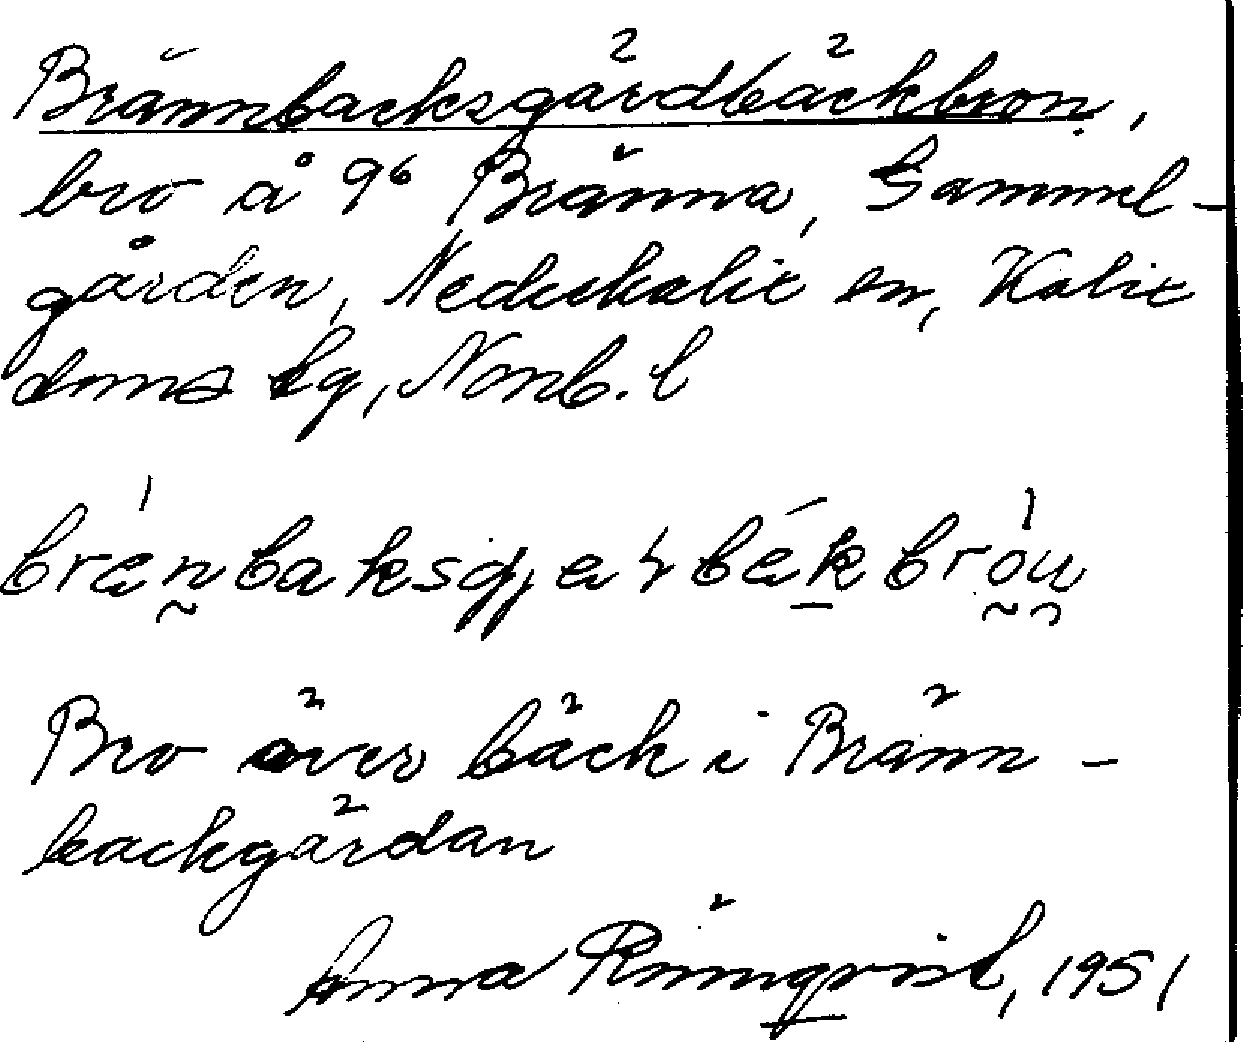 Brännbacksgärdbäckbron,
bro å 9⁶ Bränna, Gammel-
gården, Nederkalix sn, Kalix
doms lg, Norrb. l
brä́nbaksgjeɾbä́kbróu
Bro över bäck i Bränn-
backgärdan
Anna Rönnqvist, 1951